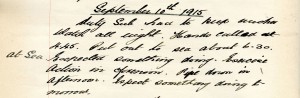 September 10th 1915
Duty Sub. Had to keep under
Watch all night. Hands called at
4.45. Put out to sea about 6.30.
At Sea. Expected something doing. Exercise
Action in forenoon. Pipe down in
afternoon. Expect something doing to-
morrow.